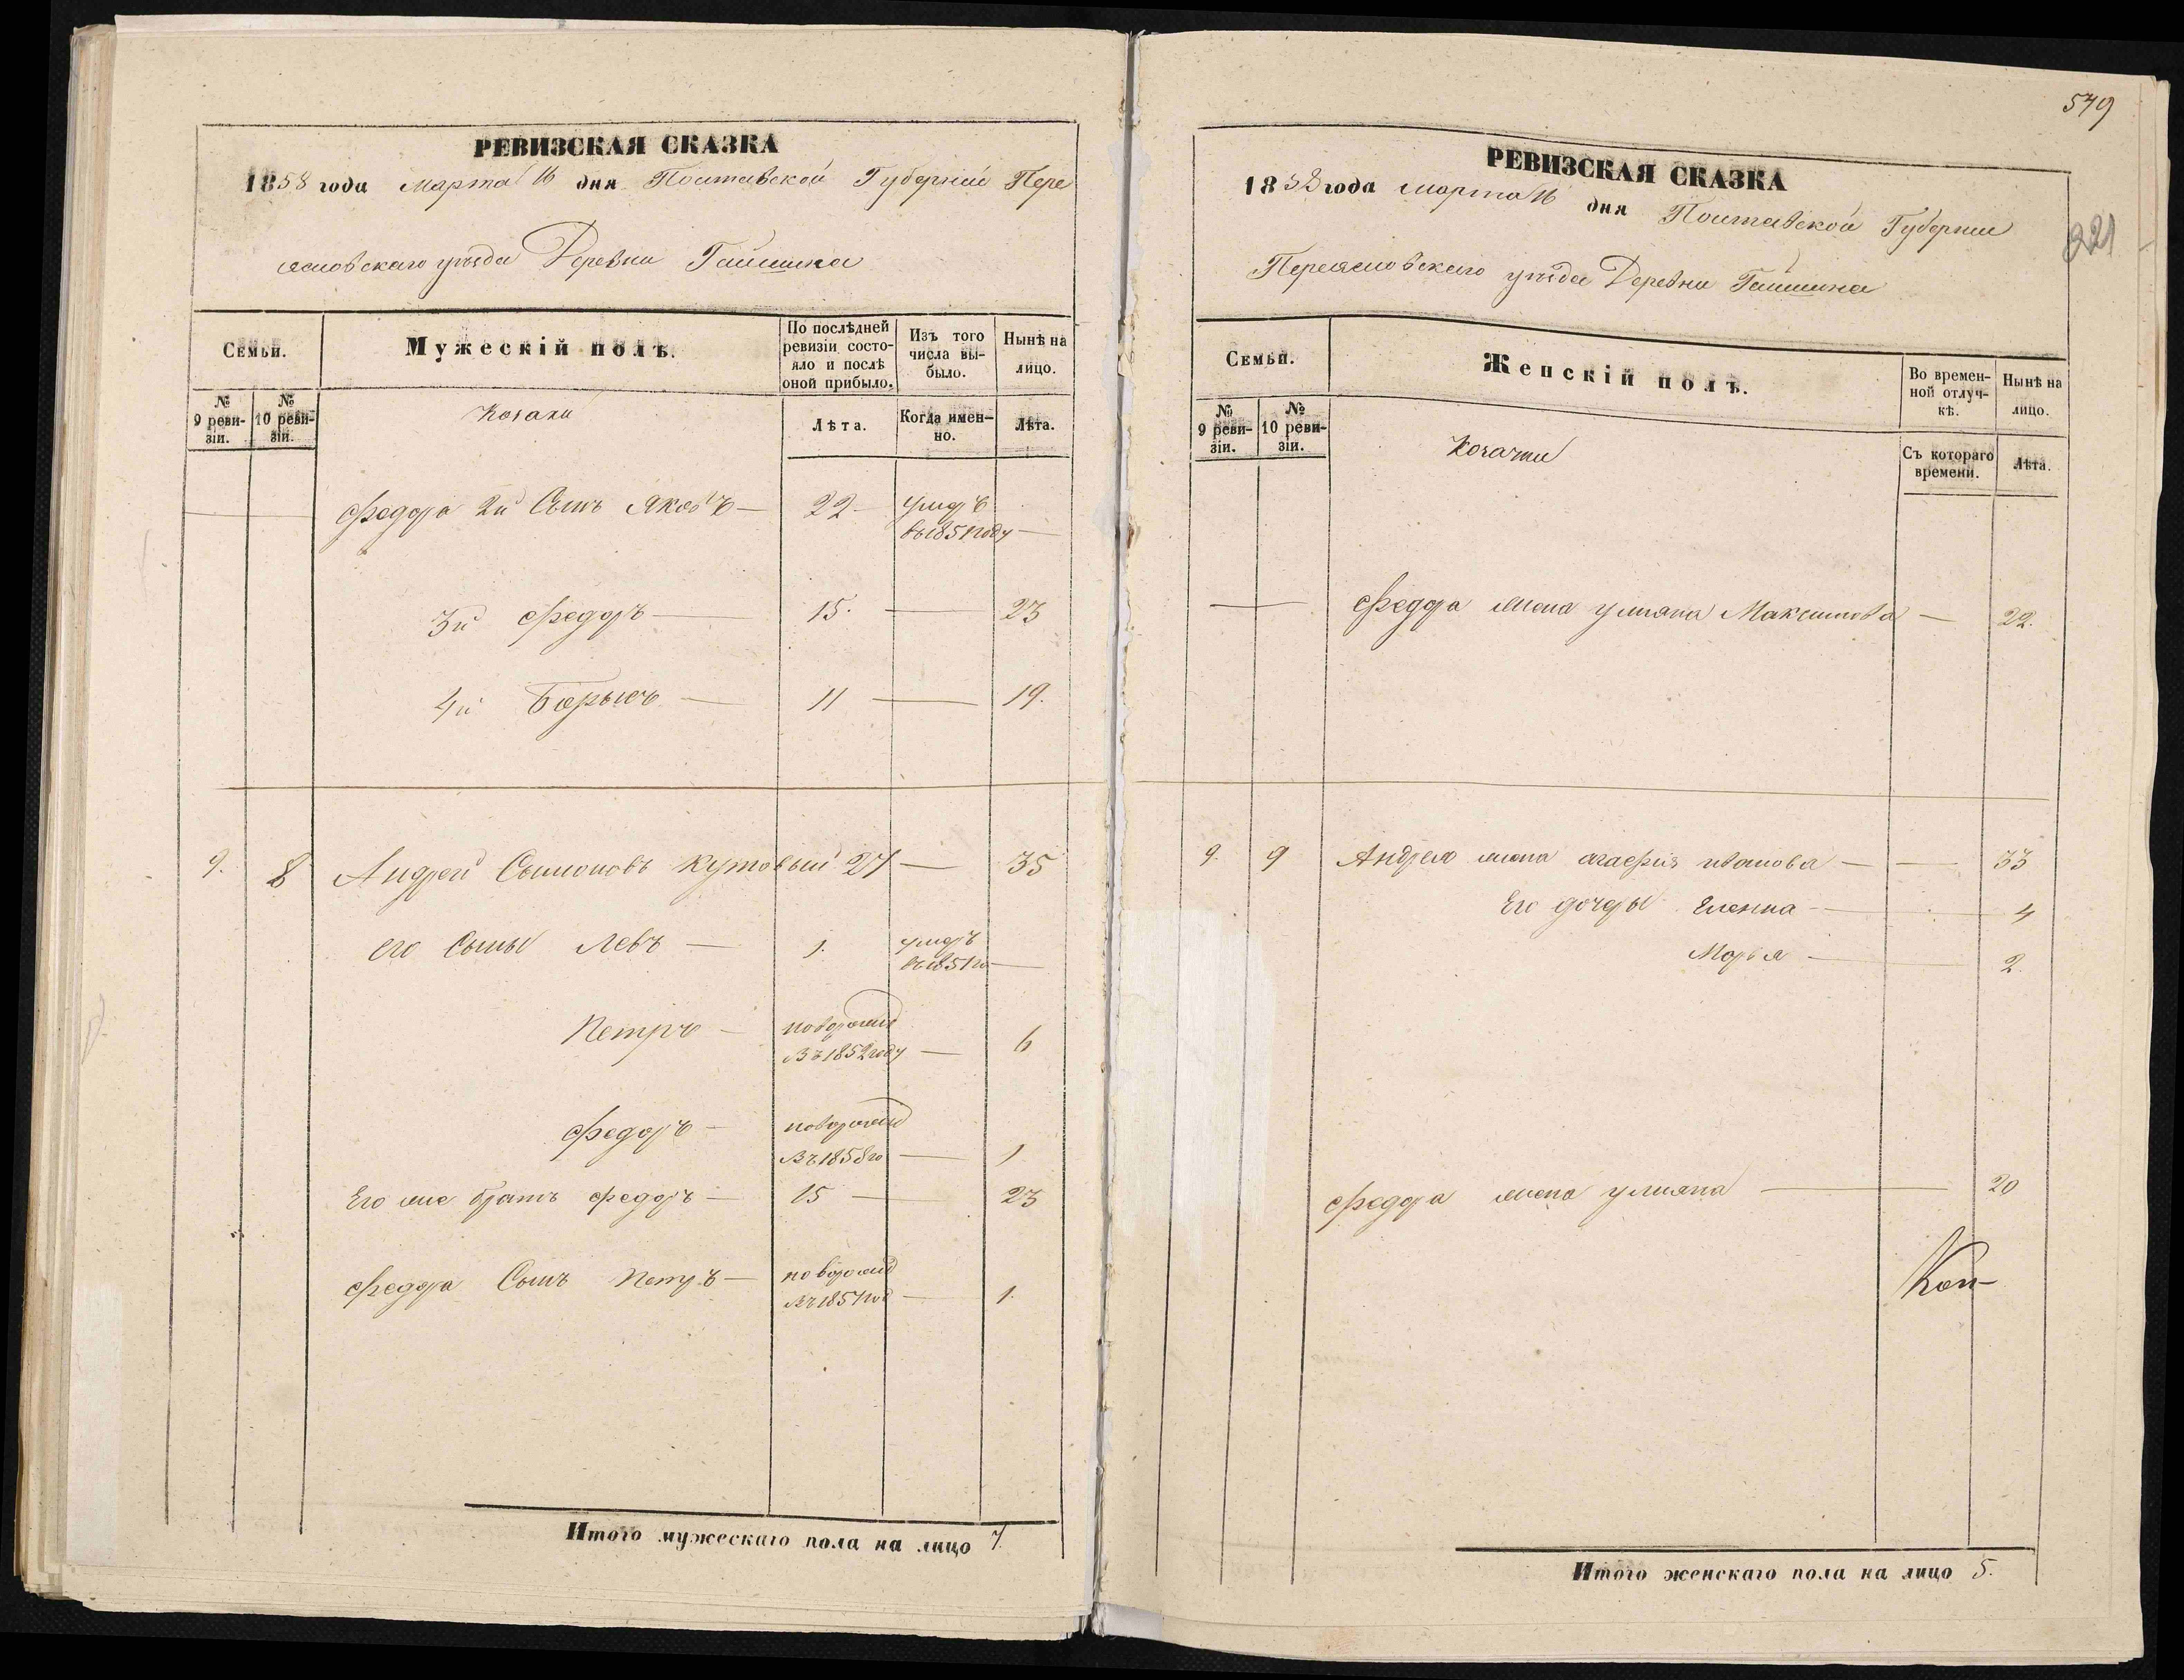 РЕВИЗСКАЯ СКАЗКА
1858 года Марта 16 дня Полтавской Губернии Пере
яславскаго уѣзда Деревни Гайшина
Семьи.
Мужескій полъ.
По послѣдней ревизіи состояло и послѣ оной прибыло.
Изъ того числа выбыло.
Нынѣ на лицо.
№ 9 ревизіи.
№ 10 ревизіи.
Козаки
Лѣта.
Когда именно.
Лѣта.
Федора 2й Сынъ Яковъ — 22 — умеръ
въ 1851 году —
3й Федоръ — 15. — 23
4й Борысъ — 11 — 19.
9. 8 Андрей Сымоновъ Кутовый 27 — 35
его Сыны Левъ — 1. умеръ
въ 1851 го —
Петръ — новорожд
Въ 1852 году — 6
Федоръ — новорожд
Въ 1858 го — 1
Его же братъ Федоръ — 15 — 23
Федора Сынъ Петръ — новорожд
Въ 1857 год — 1.
Итого мужескаго пола на лицо 7.
579
221
РЕВИЗСКАЯ СКАЗКА
1858 года Марта 16 дня Полтавской Губернии
Переяславскаго уѣзда Деревни Гайшина
Семьи.
Женскій полъ.
Во временной отлучкѣ.
Нынѣ на лицо.
№ 9 ревизіи.
№ 10 ревизіи.
Козачки
Съ котораго времени.
Лѣта.
Федора жена улияна Максимова — 22.
9. 9 Андрея жена агафия иванова — 33
Его дочеры Еленна — 4
Марья — 2.
Федора жена улияна — 20
Коп-
Итого женскаго пола на лицо 5.